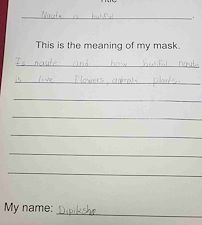 Title
Naute is butiful.
This is the meaning of my mask.
Is naute and how butiful naute
is live flowers, animals plants.
My name: Dipiksha